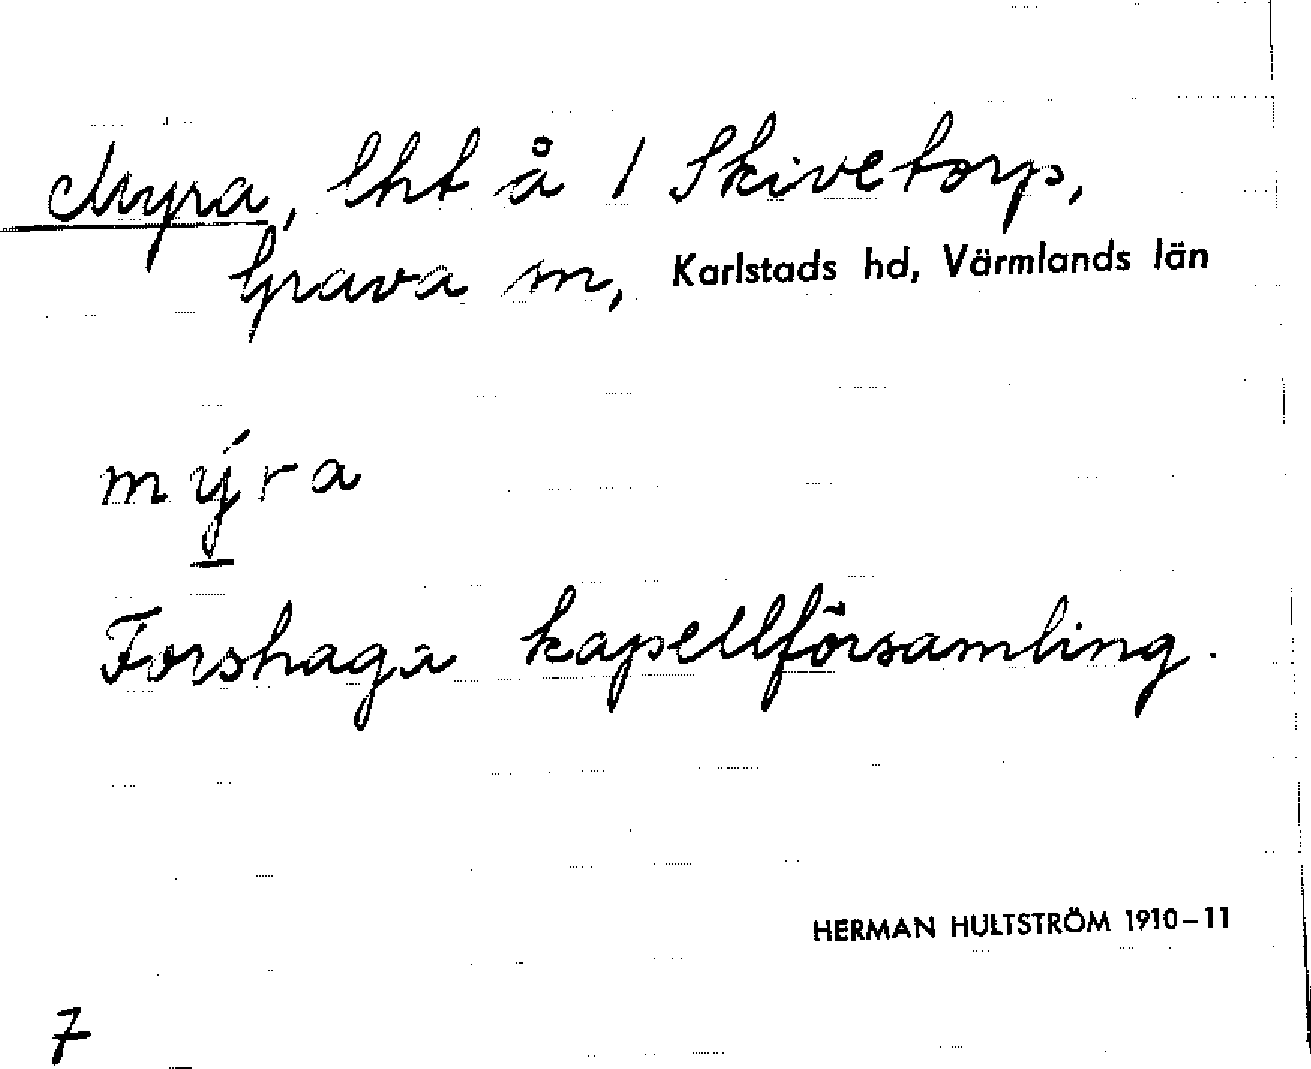 Myra, lht å 1 Skivetorp,
Grava sn, Karlstads hd, Värmlands län
mýra
Forshaga kapellförsamling.
HERMAN HULTSTRÖM 1910-11
7